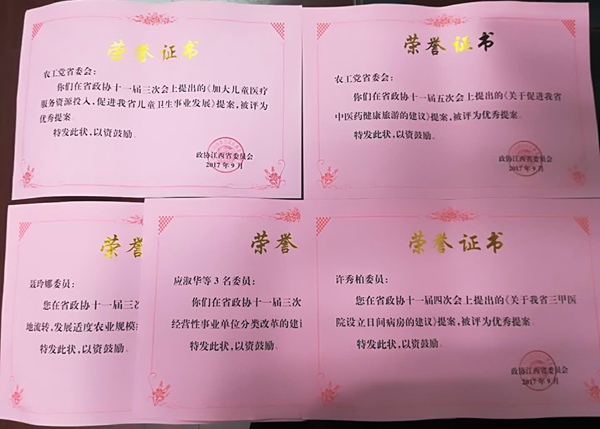 荣誉证书
农工党省委会：
你们在省政协十一届三次会上提出的《加大儿童医疗
服务资源投入，促进我省儿童卫生事业发展》提案，被评为
优秀提案。
特发此状，以资鼓励。
政协江西省委员会
2017年9月
荣誉证书
农工党省委会：
你们在省政协十一届五次会上提出的《关于促进我省
中医药健康旅游的建议》提案，被评为优秀提案。
特发此状，以资鼓励。
政协江西省委员会
2017年9月
荣誉
聂玲娜委员：
您在省政协十一届三
地流转，发展适度农业规模
特发此状，以资鼓励。
荣誉
应淑华等3名委员：
你们在省政协十一届三次
经营性事业单位分类改革的建
特发此状，以资鼓励。
荣誉证书
许秀柏委员：
您在省政协十一届四次会上提出的《关于我省三甲医
院设立日间病房的建议》提案，被评为优秀提案。
特发此状，以资鼓励。
政协江西省委员会
2017年9月